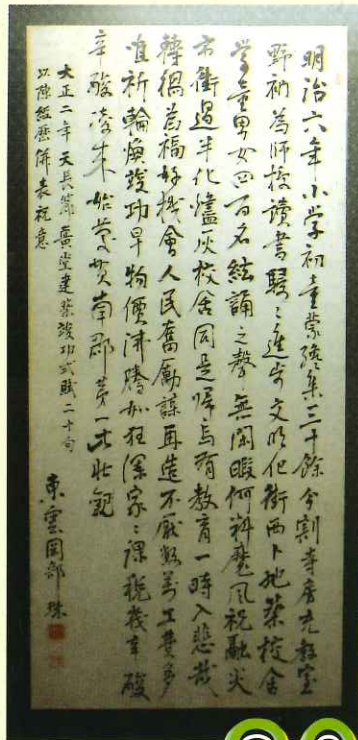 明治六年小学初童蒙纔集三十餘分割寺房充教室
野衲為師授讀書駸々進歩文明化街西卜地築校舎
学童男女四百名絃誦之聲無閑暇何料魔風祝融災
市街過半化燼灰校舎同是帰烏有教育一時入悲哉
轉禍為福好機會人民奮勵謀再造不厭数萬工費多
唯祈輪奐竣功早物價沸騰如狂瀾家々課税幾辛酸
辛酸凌来始 南郡第一此壮観
大正二年天長節黌堂建築竣功式賦二十句
以陳經歴併表祝意
東雲岡部